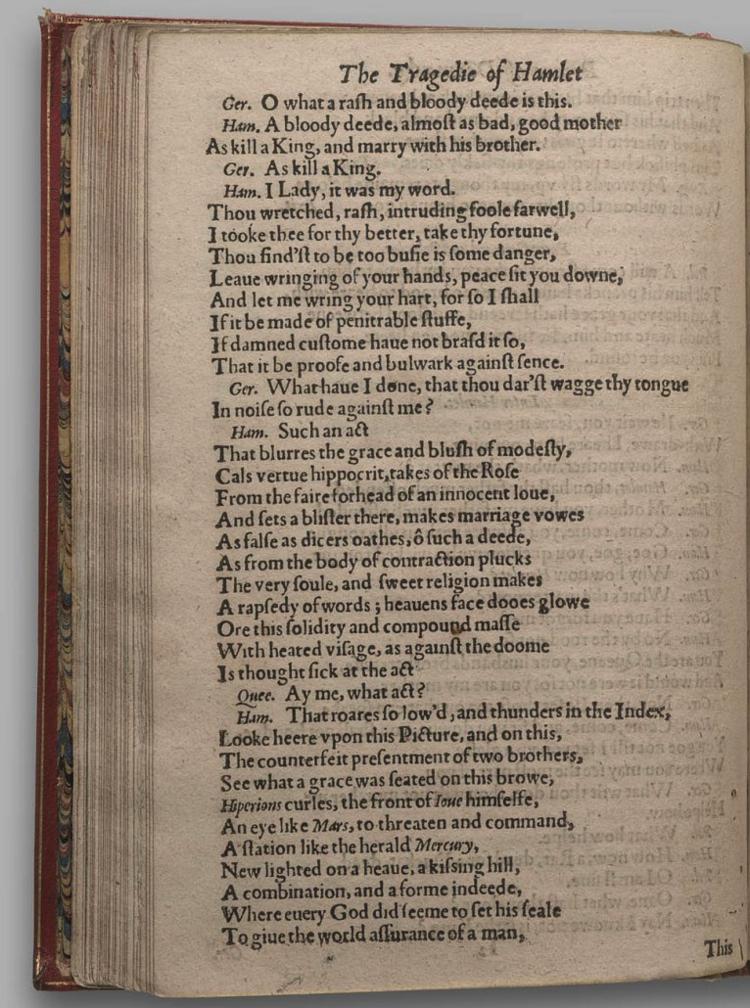 The Tragedie of Hamlet
Ger. O what a raſh and bloody deede is this.
Ham. A bloody deede, almoſt as bad, good mother
As kill a King, and marry with his brother.
Ger. As kill a King.
Ham. I Lady, it was my word.
Thou wretched, raſh, intruding foole farwell,
I tooke thee for thy better, take thy fortune,
Thou find'ſt to be too buſie is ſome danger,
Leaue wringing of your hands, peace ſit you downe,
And let me wring your hart, for ſo I ſhall
If it be made of penitrable ſtuffe,
If damned cuſtome haue not braſd it ſo,
That it be proofe and bulwark againſt ſence.
Ger. What haue I done, that thou dar'ſt wagge thy tongue
In noiſe ſo rude againſt me?
Ham. Such an act
That blurres the grace and bluſh of modeſty,
Cals vertue hippocrit, takes of the Roſe
From the faire forhead of an innocent loue,
And ſets a bliſter there, makes marriage vowes
As falſe as dicers oathes, ô ſuch a deede,
As from the body of contraction plucks
The very ſoule, and ſweet religion makes
A rapſedy of words; heauens face dooes glowe
Ore this ſolidity and compound maſſe
With heated viſage, as againſt the doome
Is thought ſick at the act
Quee. Ay me, what act?
Ham. That roares ſo low'd, and thunders in the Index,
Looke heere vpon this Picture, and on this,
The counterfeit preſentment of two brothers,
See what a grace was ſeated on this browe,
Hiperions curles, the front of Ioue himſelfe,
An eye like Mars, to threaten and command,
A ſtation like the herald Mercury,
New lighted on a heaue, a kiſsing hill,
A combination, and a forme indeede,
Where euery God did ſeeme to ſet his ſeale
To giue the world aſſurance of a man,
This